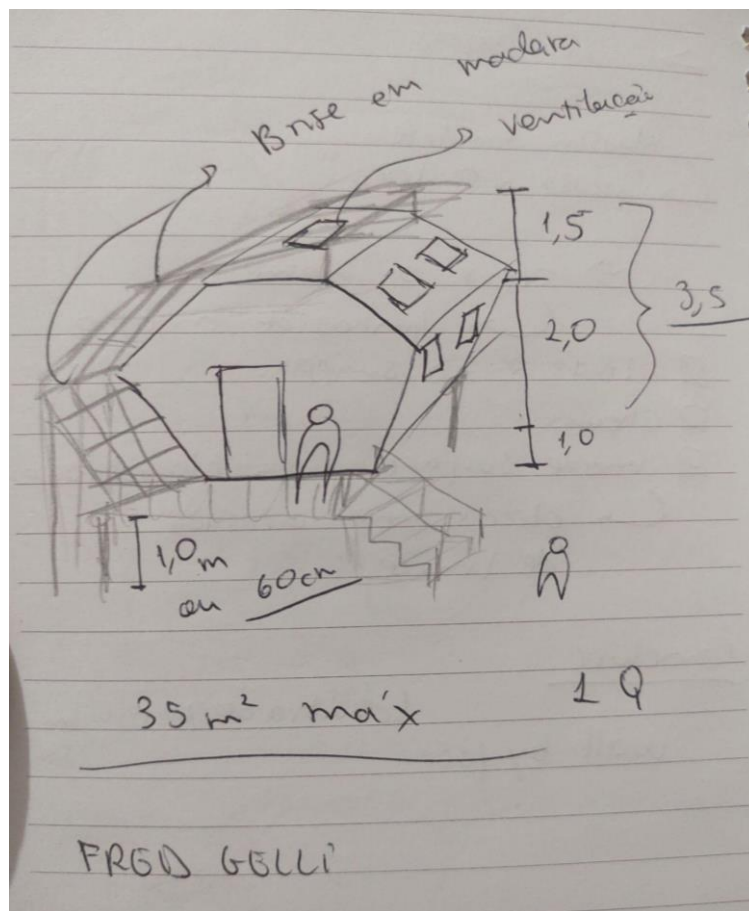 Brise em madara
ventilação
1,5
3,5
2,0
1,0
1,0m
ou 60cm
35 m² máx
1 Q
FRED GELLI